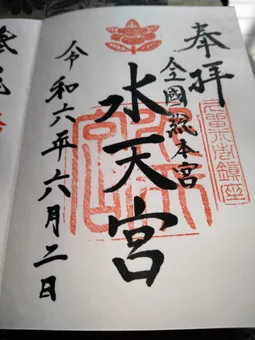 奉拝
全國総本宮
水天宮
令和六年六月二日